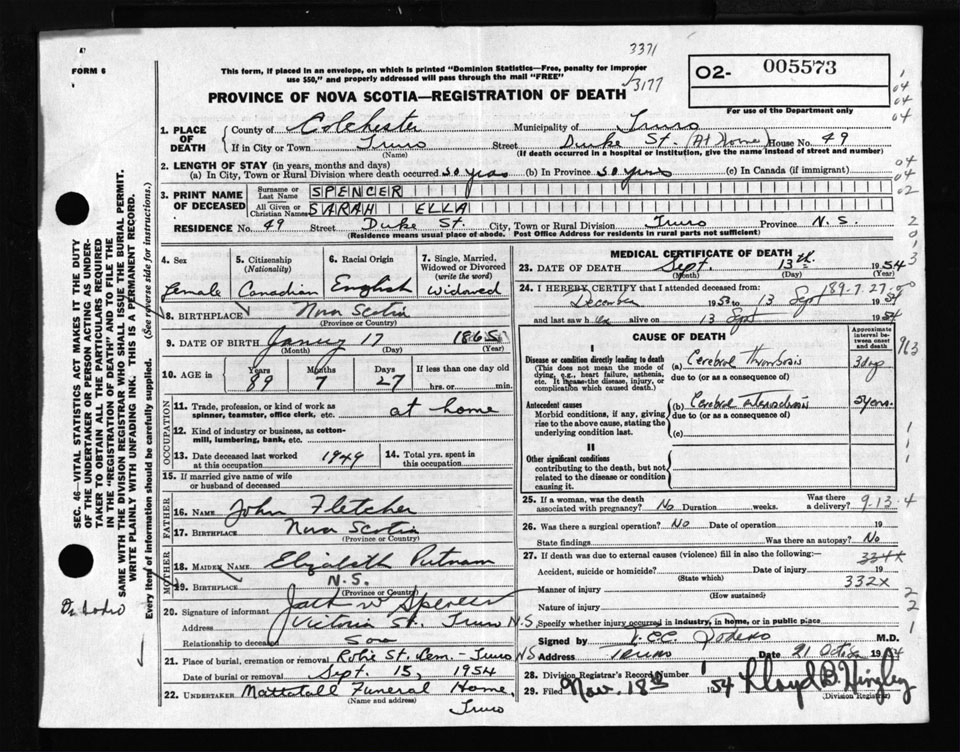 3371
FORM 6
This form, if placed in an envelope, on which is printed "Dominion Statistics—Free, penalty for improper use $50," and properly addressed will pass through the mail "FREE"
3177
O2- 005573
For use of the Department only
PROVINCE OF NOVA SCOTIA—REGISTRATION OF DEATH
1. PLACE OF DEATH
County of Colchester Municipality of Truro
If in City or Town Truro (Name) Street Duke St. (At Home) House No. 49
(If death occurred in a hospital or institution, give the name instead of street and number)
2. LENGTH OF STAY (in years, months and days)
(a) In City, Town or Rural Division where death occurred 50 years (b) In Province 50 years (c) In Canada (if immigrant)
3. PRINT NAME OF DECEASED
Surname or Last Name SPENCER
All Given or Christian Names SARAH ELLA
RESIDENCE No. 49 Street Duke St. City, Town or Rural Division Truro Province N.S.
(Residence means usual place of abode. Post Office Address for residents in rural parts not sufficient)
4. Sex Female
5. Citizenship (Nationality) Canadian
6. Racial Origin English
7. Single, Married, Widowed or Divorced (write the word) Widowed
8. BIRTHPLACE Nova Scotia
(Province or Country)
9. DATE OF BIRTH January 17 1865
(Month) (Day) (Year)
10. AGE in Years 89 Months 7 Days 27 If less than one day hrs. or min.
OCCUPATION
11. Trade, profession, or kind of work as spinner, teamster, office clerk, etc. at home
12. Kind of industry or business, as cotton-mill, lumbering, bank, etc.
13. Date deceased last worked at this occupation 1949
14. Total yrs. spent in this occupation
15. If married give name of wife or husband of deceased
FATHER
16. Name John Fletcher
17. Birthplace Nova Scotia
(Province or Country)
MOTHER
18. Maiden Name Elizabeth Putnam
19. Birthplace N.S.
(Province or Country)
20. Signature of informant Jack W Spencer
Address Victoria St. Truro N.S.
Relationship to deceased Son
21. Place of burial, cremation or removal Robie St. Cem. - Truro NS
Date of burial or removal Sept. 15, 1954
22. UNDERTAKER Mattatall Funeral Home,
(Name and address)
Truro
MEDICAL CERTIFICATE OF DEATH
23. DATE OF DEATH Sept. 13th 1954
(Month) (Day) (Year)
189-7-27-
24. I HEREBY CERTIFY that I attended deceased from:
December 1953 to 13 Sept 1954
and last saw h er alive on 13 Sept 1954
CAUSE OF DEATH
Approximate interval between onset and death
I
Disease or condition directly leading to death
(This does not mean the mode of dying, e.g., heart failure, asthenia, etc. It means the disease, injury, or complication which caused death.)
(a) Cerebral thrombosis 3 days
due to (or as a consequence of)
Antecedent causes
Morbid conditions, if any, giving rise to the above cause, stating the underlying condition last.
(b) Cerebral arteriosclerosis 5 years
due to (or as a consequence of)
(c)
II
Other significant conditions
contributing to the death, but not related to the disease or condition causing it.
25. If a woman, was the death associated with pregnancy? No Duration weeks. Was there a delivery? 9-13-4
26. Was there a surgical operation? No Date of operation 19
State findings Was there an autopsy? No
27. If death was due to external causes (violence) fill in also the following:—
334X
Accident, suicide or homicide? Date of injury 19
(State which)
332X
Manner of injury
(How sustained)
Nature of injury
Specify whether injury occurred in industry, in home, or in public place
Signed by M.D.
Address Truro Date 21 1954
28. Division Registrar's Record Number
29. Filed Nov. 18th 1954 Lloyd B. Hingley
(Division Registrar)
SEC. 46—VITAL STATISTICS ACT MAKES IT THE DUTY OF THE UNDERTAKER OR PERSON ACTING AS UNDERTAKER TO OBTAIN ALL THE PARTICULARS REQUIRED IN THE "REGISTRATION OF DEATH" AND TO FILE THE SAME WITH THE DIVISION REGISTRAR WHO SHALL ISSUE THE BURIAL PERMIT.
WRITE PLAINLY WITH UNFADING INK. THIS IS A PERMANENT RECORD.
Every item of information should be carefully supplied. (See reverse side for instructions.)